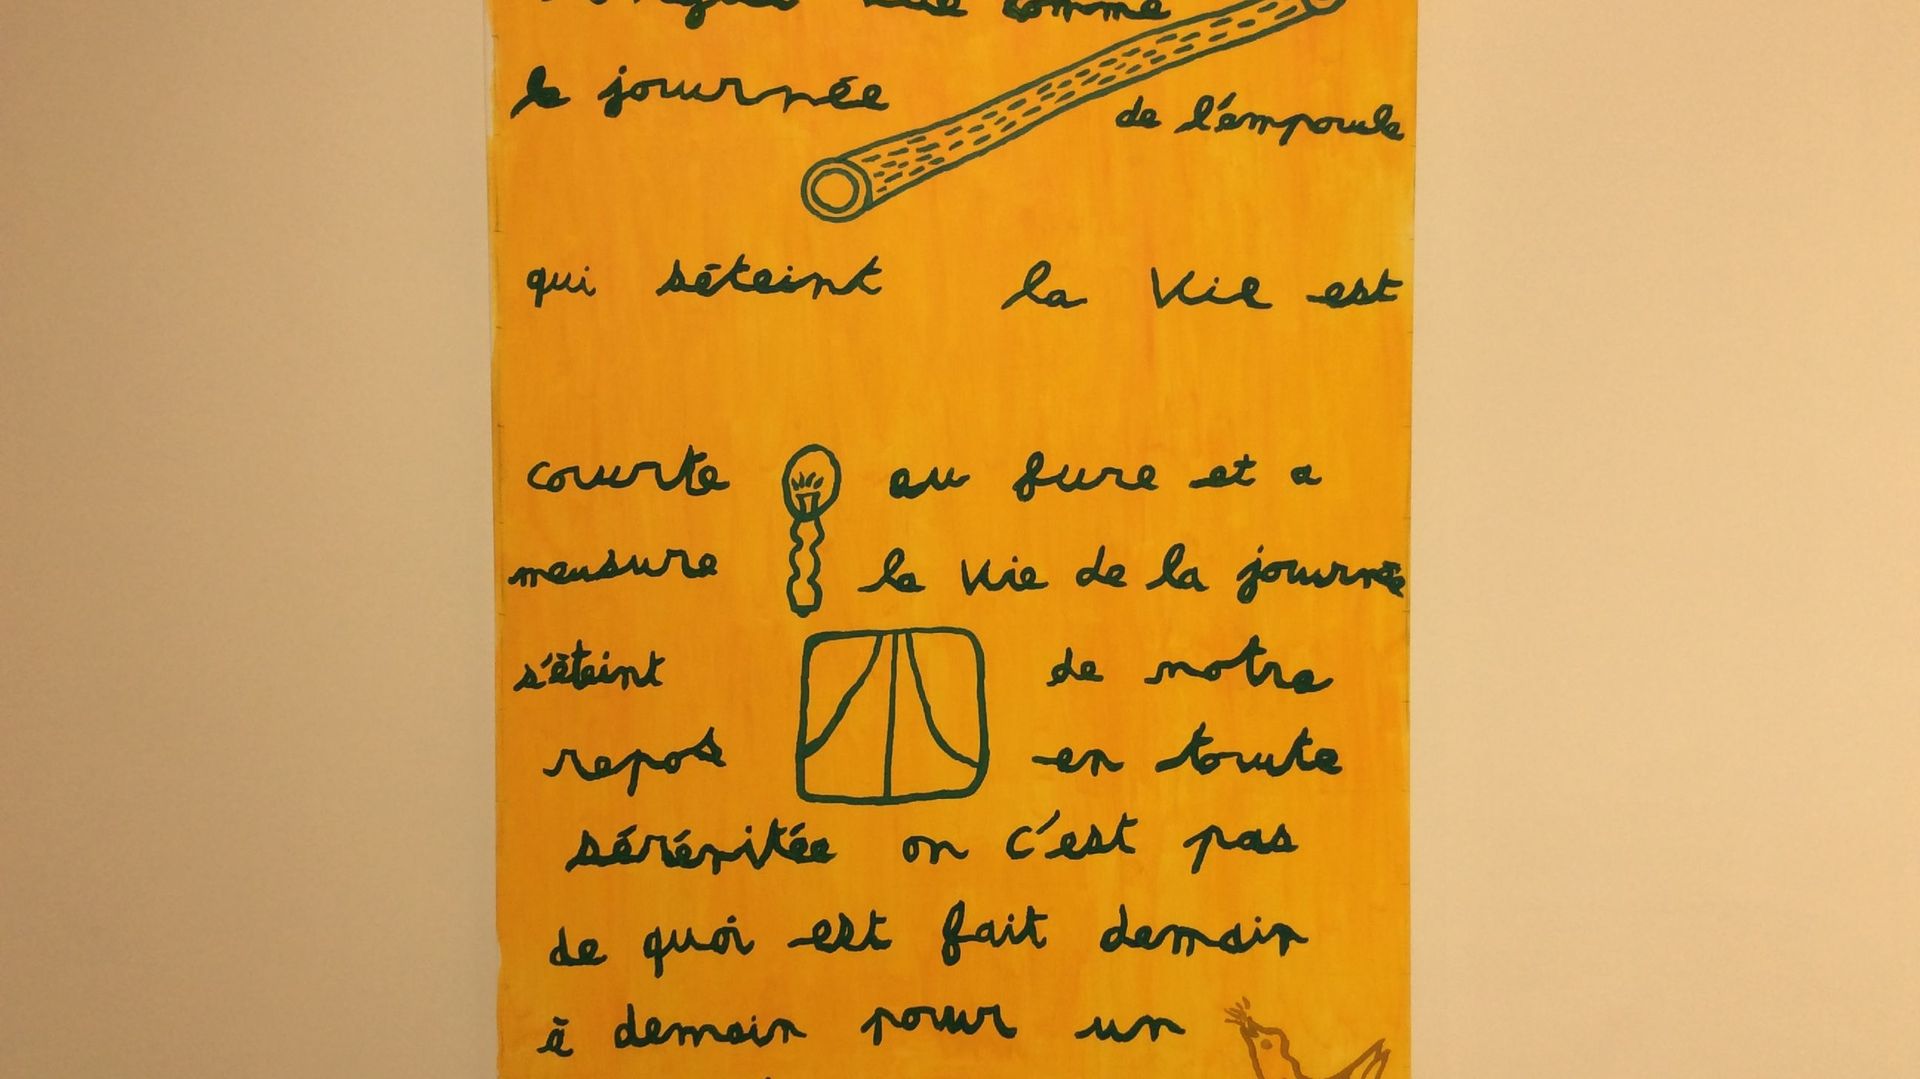 comme
la journée de l'émpoule
qui séteint la Vie est
courte au fure et a
meusure la Vie de la journée
s'éteint de notre
repos en toute
sérénitée on c'est pas
de quoi est fait demain
à demain pour un